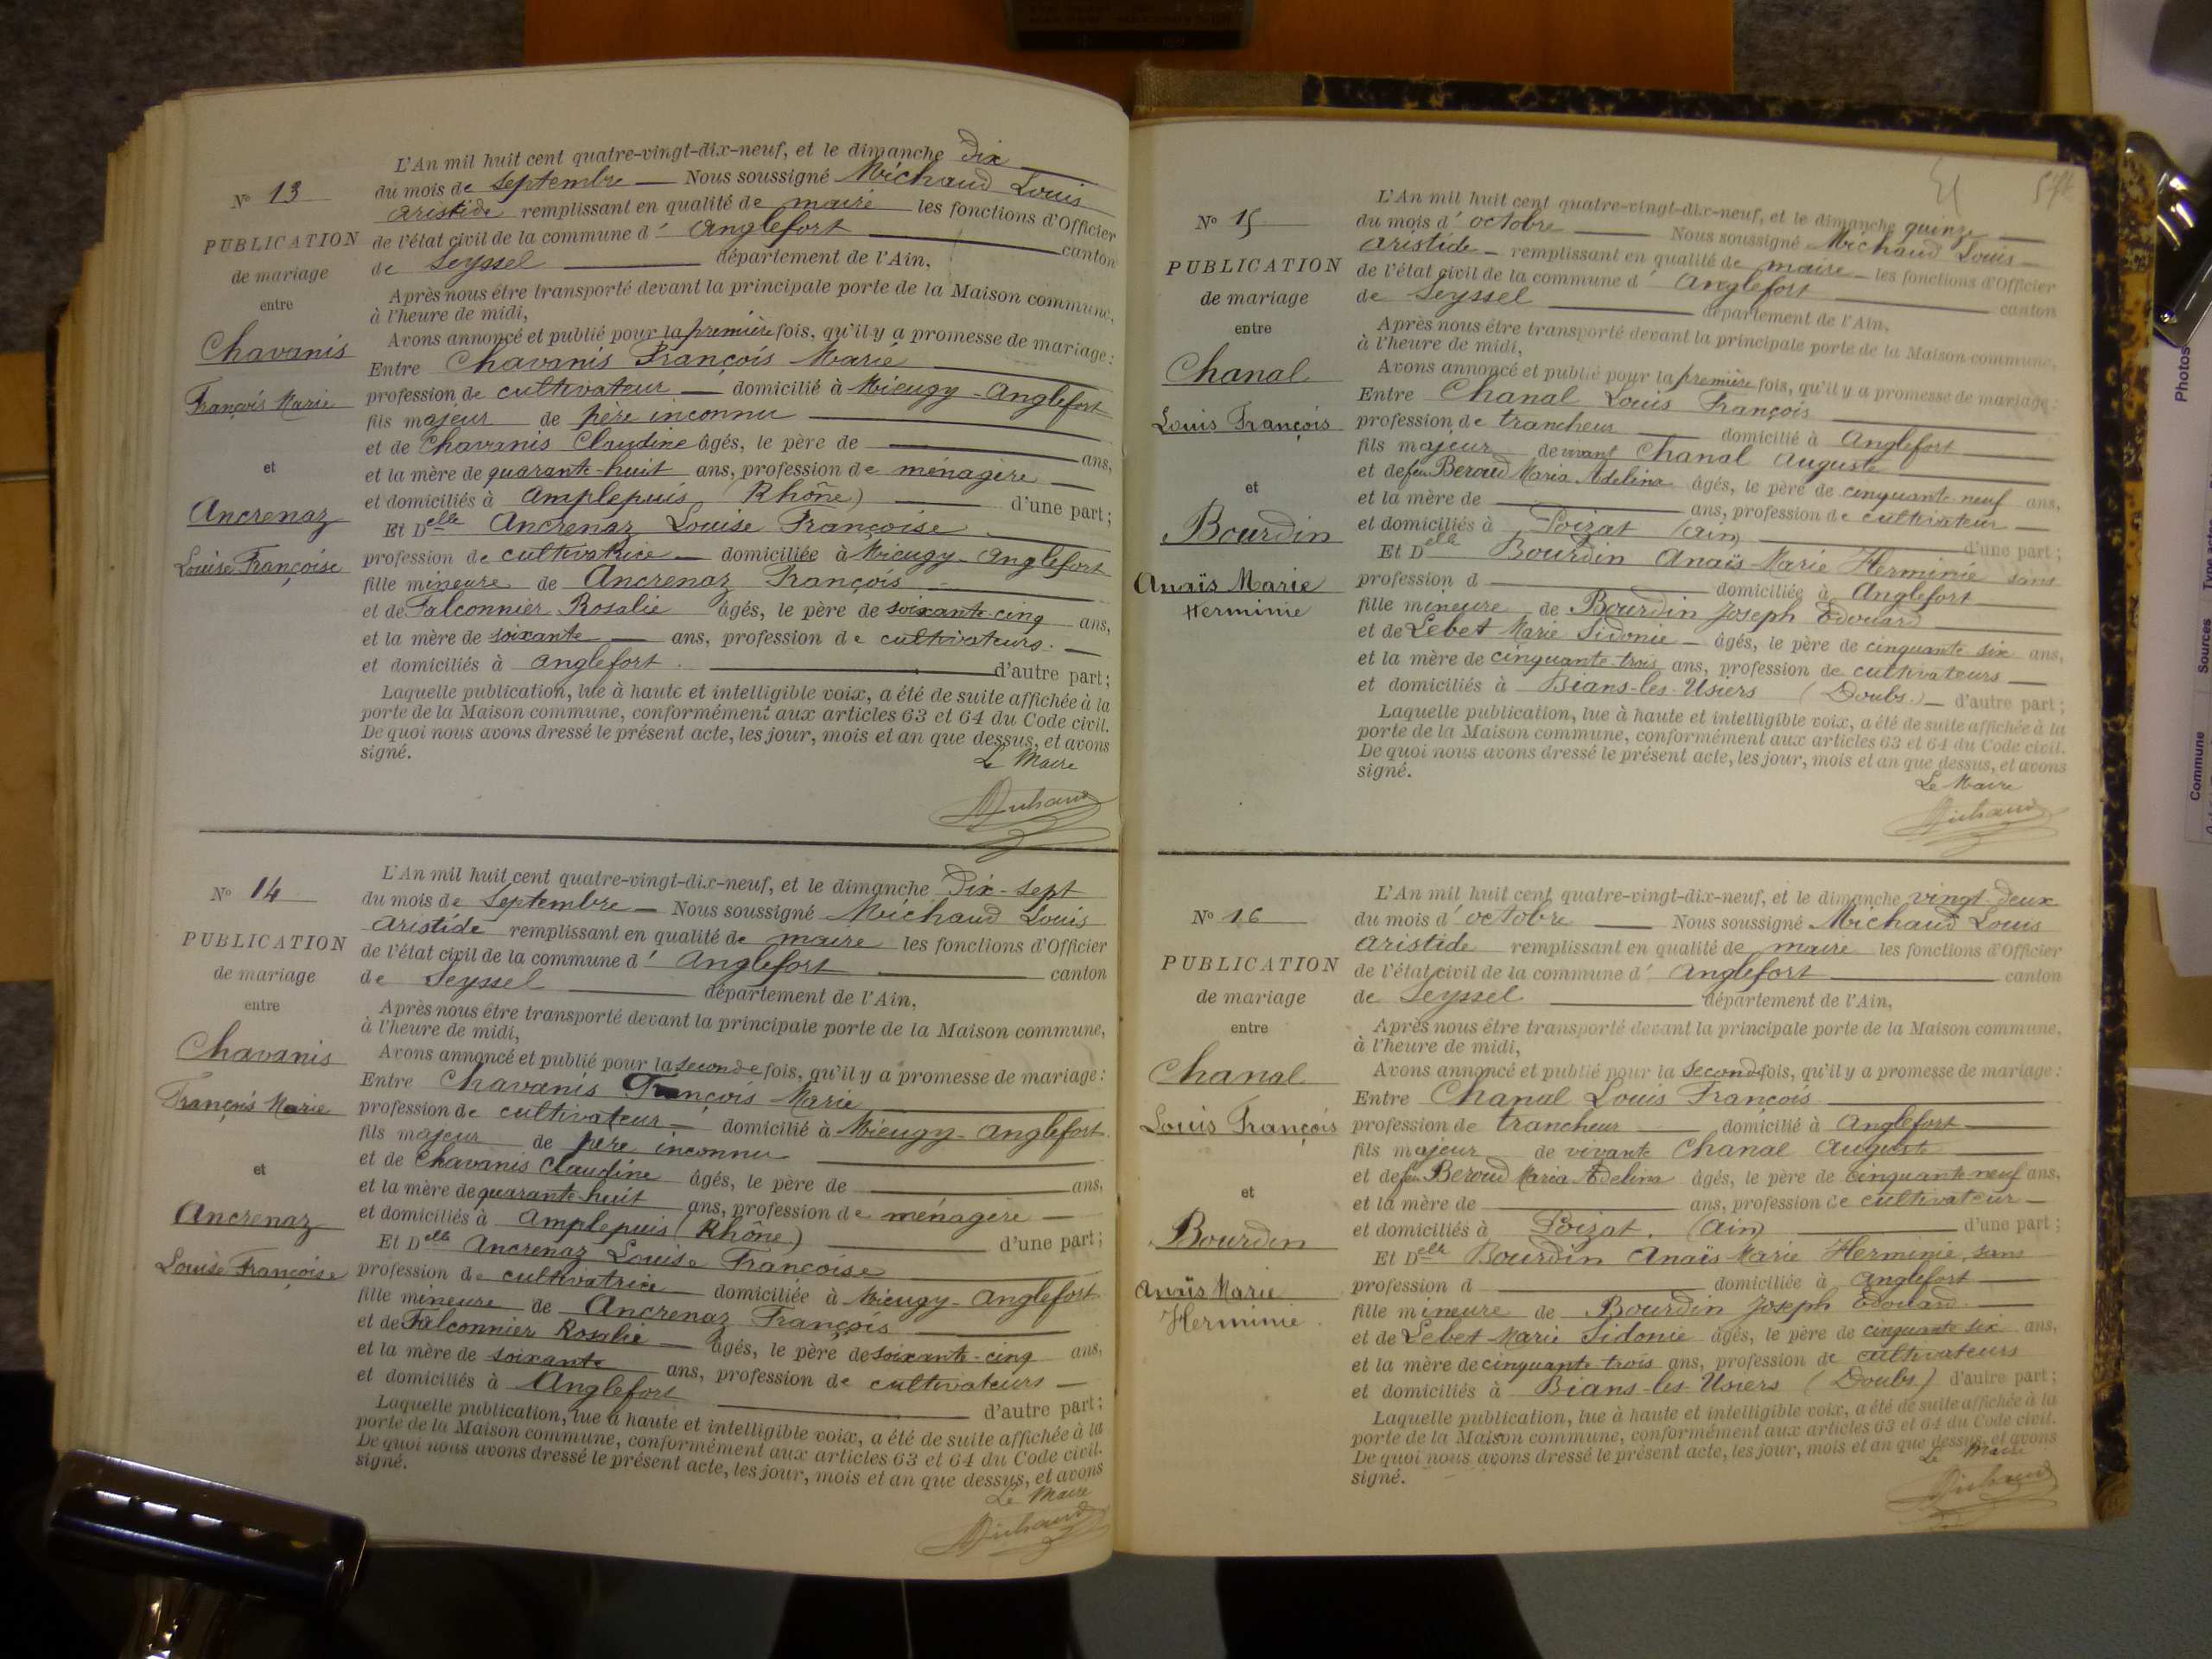 N° 13
PUBLICATION
de mariage
entre
Chavanis
François Marie
et
Ancrenaz
Louise Françoise
L'An mil huit cent quatre-vingt-dix-neuf, et le dimanche Dix
du mois de septembre Nous soussigné Michaud Louis
aristide remplissant en qualité de maire les fonctions d'Officier
de l'état civil de la commune d' Anglefort canton
de Seyssel département de l'Ain,
Après nous être transporté devant la principale porte de la Maison commune,
à l'heure de midi,
Avons annoncé et publié pour la première fois, qu'il y a promesse de mariage :
Entre Chavanis François Marie
profession de cultivateur domicilié à Mieugy - Anglefort
fils majeur de père inconnu
et de Chavanis Claudine âgés, le père de ans,
et la mère de quarante-huit ans, profession de ménagère
et domiciliés à Amplepuis (Rhône) d'une part ;
Et Delle Ancrenaz Louise Françoise
profession de cultivatrice domiciliée à Mieugy - Anglefort
fille mineure de Ancrenaz François
et de Falconnier Rosalie âgés, le père de soixante-cinq ans,
et la mère de soixante ans, profession de cultivateurs.
et domiciliés à anglefort. d'autre part ;
Laquelle publication, lue à haute et intelligible voix, a été de suite affichée à la
porte de la Maison commune, conformément aux articles 63 et 64 du Code civil.
De quoi nous avons dressé le présent acte, les jour, mois et an que dessus, et avons
signé.
Le Maire
Michaud
N° 14
PUBLICATION
de mariage
entre
Chavanis
François Marie
et
Ancrenaz
Louise Françoise
L'An mil huit cent quatre-vingt-dix-neuf, et le dimanche Dix-sept
du mois de Septembre Nous soussigné Michaud Louis
aristide remplissant en qualité de maire les fonctions d'Officier
de l'état civil de la commune d' Anglefort canton
de Seyssel département de l'Ain,
Après nous être transporté devant la principale porte de la Maison commune,
à l'heure de midi,
Avons annoncé et publié pour la seconde fois, qu'il y a promesse de mariage :
Entre Chavanis François Marie
profession de cultivateur domicilié à Mieugy - Anglefort
fils majeur de père inconnu
et de Chavanis Claudine âgés, le père de ans,
et la mère de quarante huit ans, profession de ménagère
et domiciliés à Amplepuis (Rhône) d'une part ;
Et Delle Ancrenaz Louise Françoise
profession de cultivatrice domiciliée à Mieugy - Anglefort
fille mineure de Ancrenaz François
et de Falconnier Rosalie âgés, le père de soixante-cinq ans,
et la mère de soixante ans, profession de cultivateurs
et domiciliés à Anglefort d'autre part ;
Laquelle publication, lue à haute et intelligible voix, a été de suite affichée à la
porte de la Maison commune, conformément aux articles 63 et 64 du Code civil.
De quoi nous avons dressé le présent acte, les jour, mois et an que dessus, et avons
signé.
Le Maire
Michaud
N° 15
PUBLICATION
de mariage
entre
Chanal
Louis François
et
Bourdin
Anaïs Marie
Herminie
L'An mil huit cent quatre-vingt-dix-neuf, et le dimanche quinze
du mois d' octobre Nous soussigné Michaud Louis
aristide remplissant en qualité de maire les fonctions d'Officier
de l'état civil de la commune d' Anglefort canton
de Seyssel département de l'Ain,
Après nous être transporté devant la principale porte de la Maison commune,
à l'heure de midi,
Avons annoncé et publié pour la première fois, qu'il y a promesse de mariage :
Entre Chanal Louis François
profession de trancheur domicilié à Anglefort
fils majeur de vivant Chanal Auguste
et de feu Beroud Maria Adelina âgés, le père de cinquante neuf ans,
et la mère de ans, profession de cultivateur
et domiciliés à Poizat (Ain) d'une part ;
Et Delle Bourdin Anaïs Marie Herminie sans
profession d domiciliée à Anglefort
fille mineure de Bourdin Joseph Edouard
et de Lebet Marie Sidonie âgés, le père de cinquante six ans,
et la mère de cinquante-trois ans, profession de cultivateurs
et domiciliés à Bians-les-Usiers (Doubs.) d'autre part ;
Laquelle publication, lue à haute et intelligible voix, a été de suite affichée à la
porte de la Maison commune, conformément aux articles 63 et 64 du Code civil.
De quoi nous avons dressé le présent acte, les jour, mois et an que dessus, et avons
signé.
Le Maire
Michaud
N° 16
PUBLICATION
de mariage
entre
Chanal
Louis François
et
Bourdin
Anaïs Marie
Herminie.
L'An mil huit cent quatre-vingt-dix-neuf, et le dimanche vingt-deux
du mois d' octobre Nous soussigné Michaud Louis
aristide remplissant en qualité de maire les fonctions d'Officier
de l'état civil de la commune d' Anglefort canton
de Seyssel département de l'Ain,
Après nous être transporté devant la principale porte de la Maison commune,
à l'heure de midi,
Avons annoncé et publié pour la seconde fois, qu'il y a promesse de mariage :
Entre Chanal Louis François
profession de trancheur domicilié à Anglefort
fils majeur de vivante Chanal Auguste
et de feu Beroud Maria Adelina âgés, le père de cinquante neuf ans,
et la mère de ans, profession de cultivateur
et domiciliés à Poizat. (Ain) d'une part ;
Et Delle Bourdin Anaïs Marie Herminie, sans
profession d domiciliée à Anglefort
fille mineure de Bourdin Joseph Edouard.
et de Lebet Marie Sidonie âgés, le père de cinquante six ans,
et la mère de cinquante trois ans, profession de cultivateurs
et domiciliés à Bians-les-Usiers (Doubs) d'autre part ;
Laquelle publication, lue à haute et intelligible voix, a été de suite affichée à la
porte de la Maison commune, conformément aux articles 63 et 64 du Code civil.
De quoi nous avons dressé le présent acte, les jour, mois et an que dessus, et avons
signé.
Le Maire
Michaud
Photos
Type acte
Sources
Commune